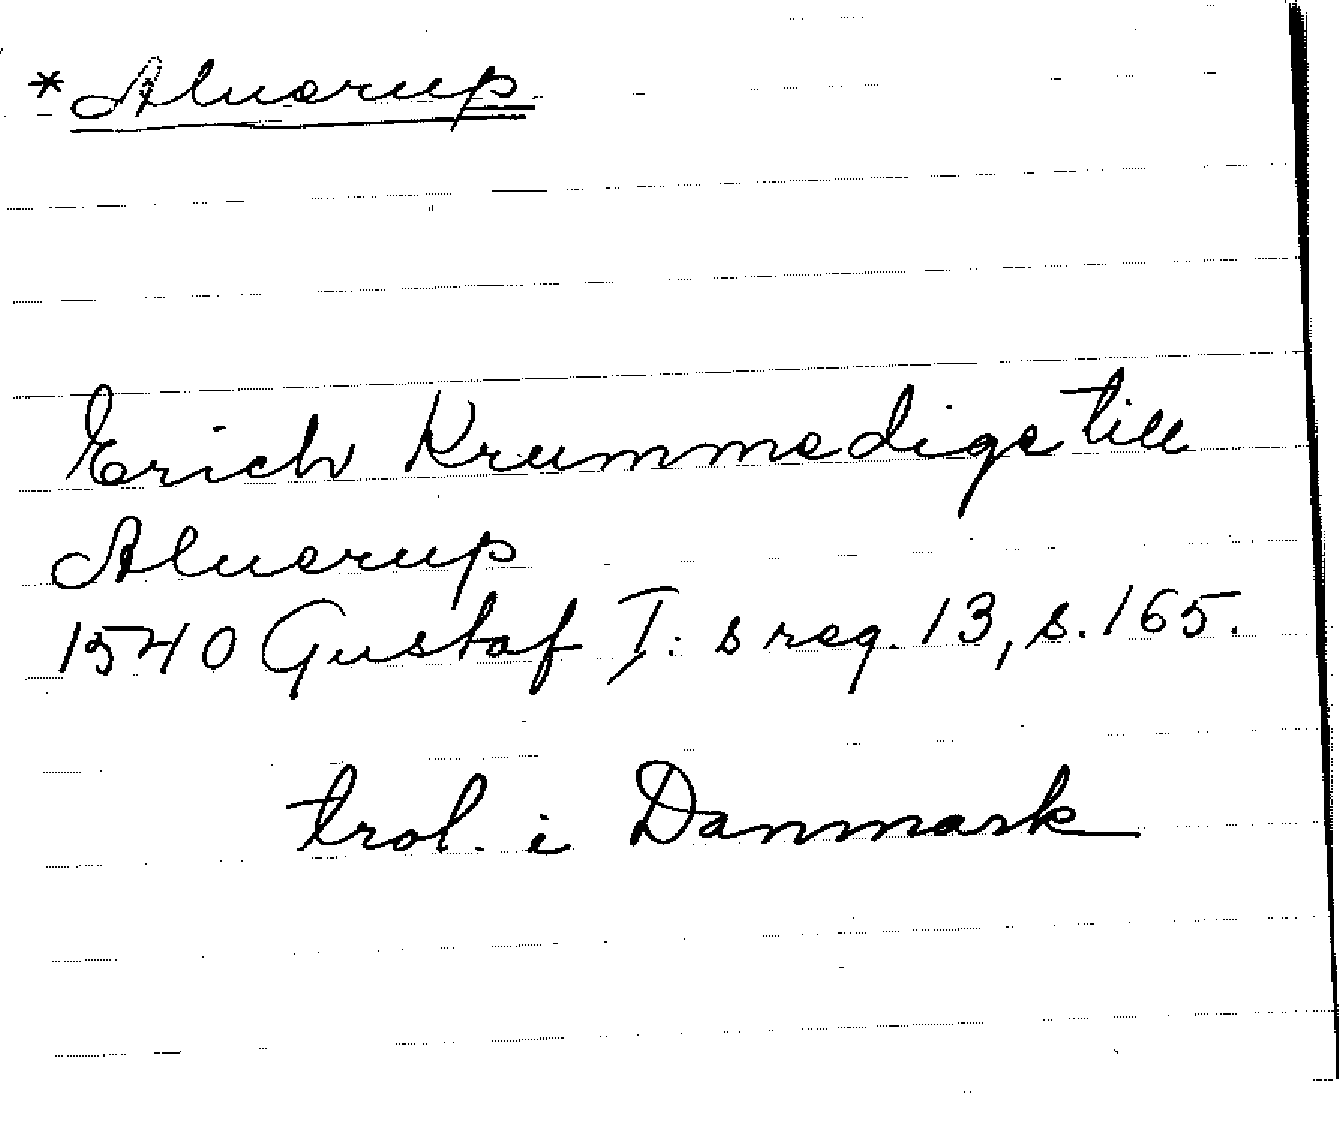 *Aluerup
Erich Krummedige till
Aluerup
1540 Gustaf I:s reg. 13, s. 165.
trol. i Danmark